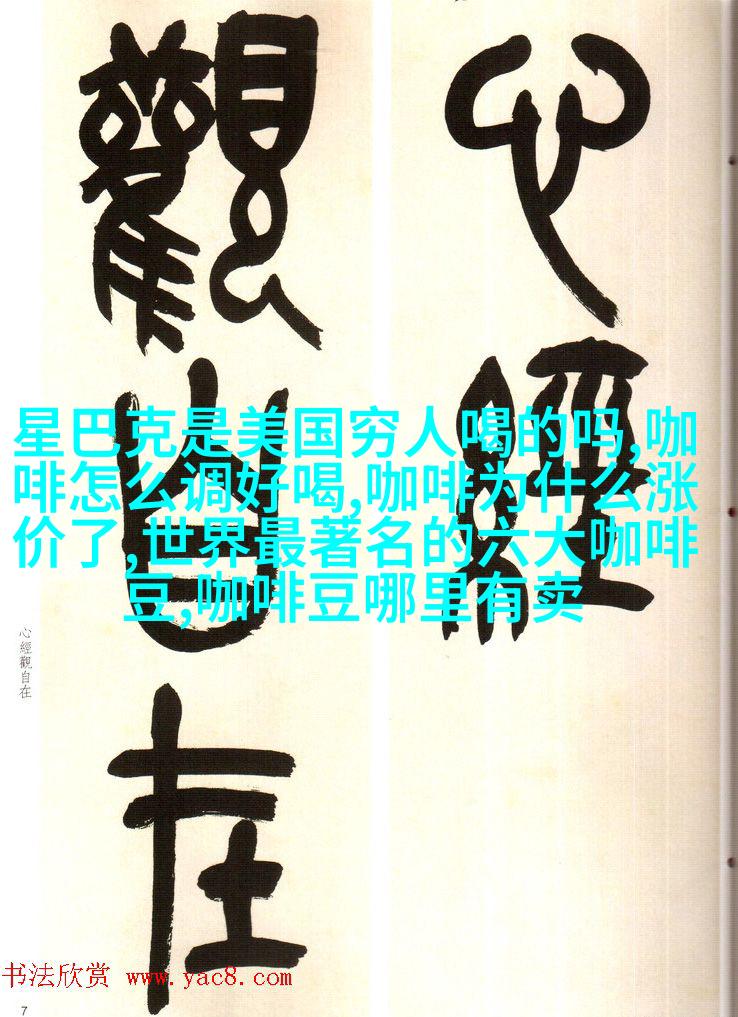 心經
觀自在
星巴克是美国穷人喝的吗,咖
啡怎么调好喝,咖啡为什么涨
价了,世界最著名的六大咖啡
豆,咖啡豆哪里有卖
心經觀自在
书法欣赏 www.yac8.com
7